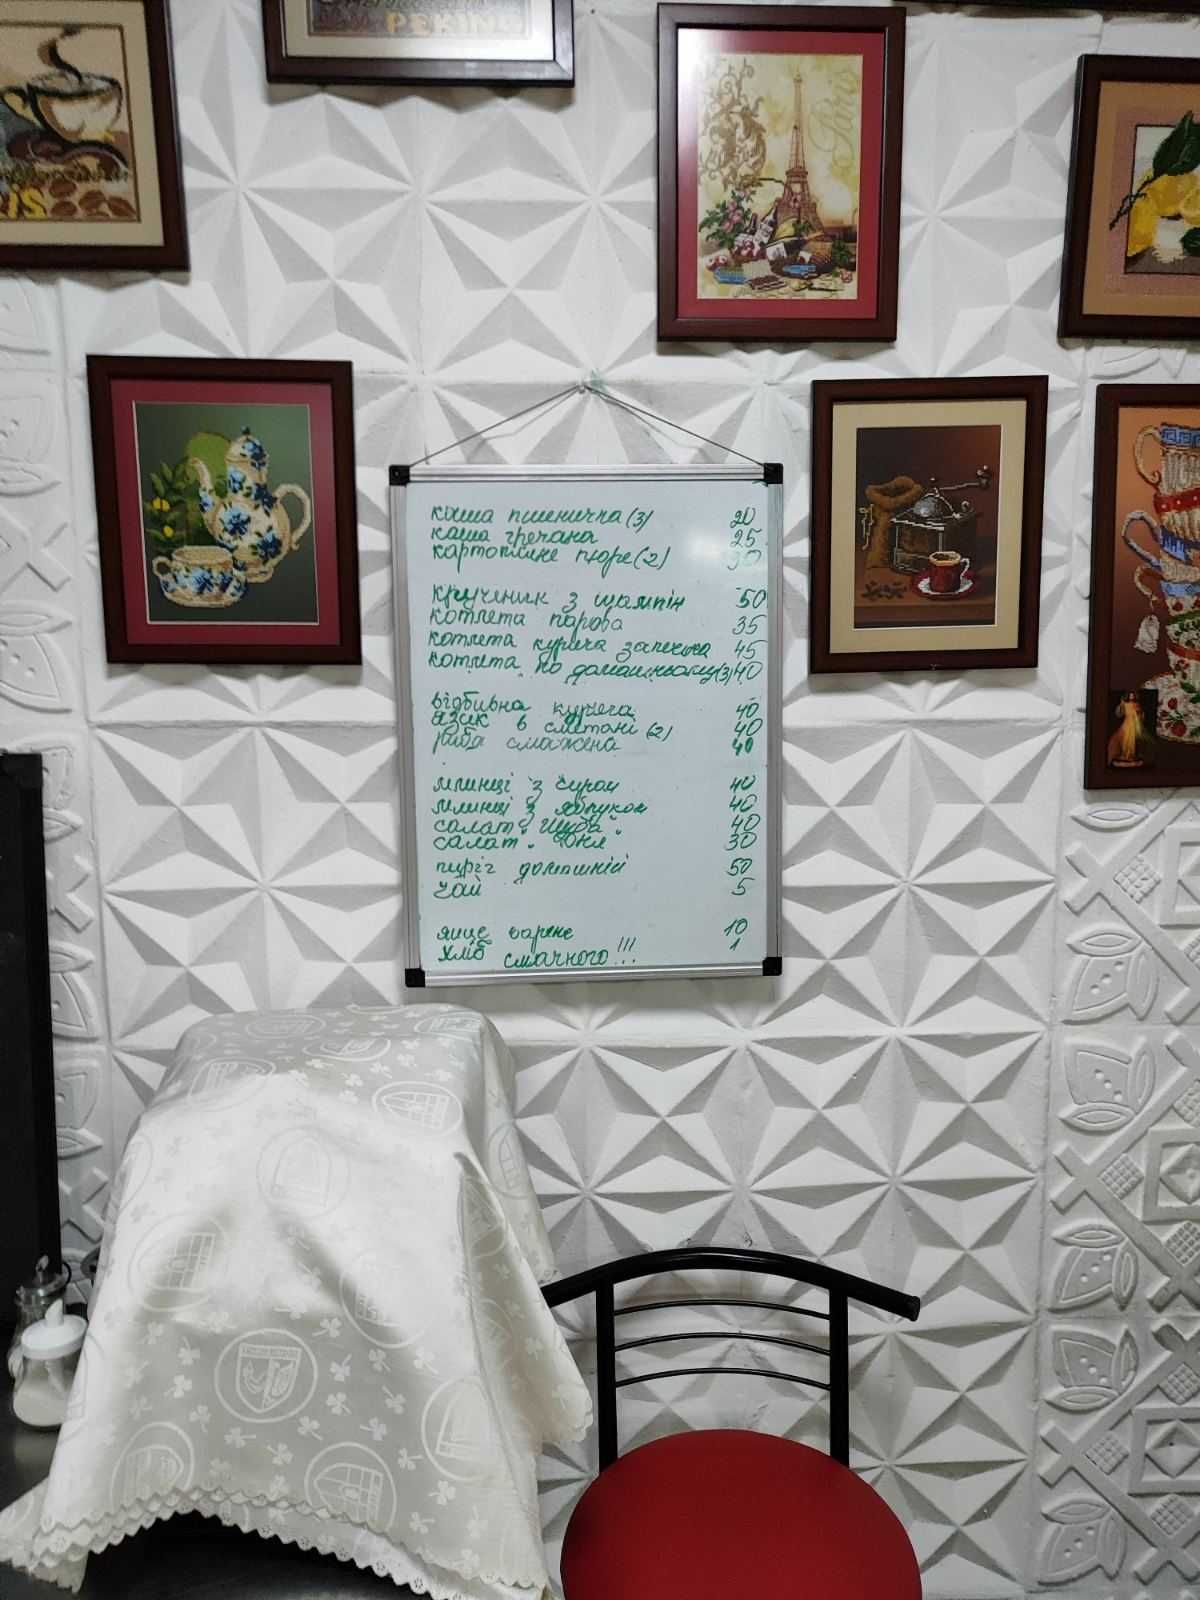 PEKING
Paris
каша пшенична (3) 20
каша гречана 25
картопляне пюре (2) 30
крученик з шампін 50
котлета парова 35
котлета куряча запечена 45
котлета по домашньому (3) 40
відбивна куряча 40
язик в сметані (2) 40
риба смажена 40
млинці з сиром 40
млинці з яблуком 40
салат "Шуба" 40
салат "
30
пиріг домашній 50
чай 5
яйце варене 10
хліб 1
смачного!!!